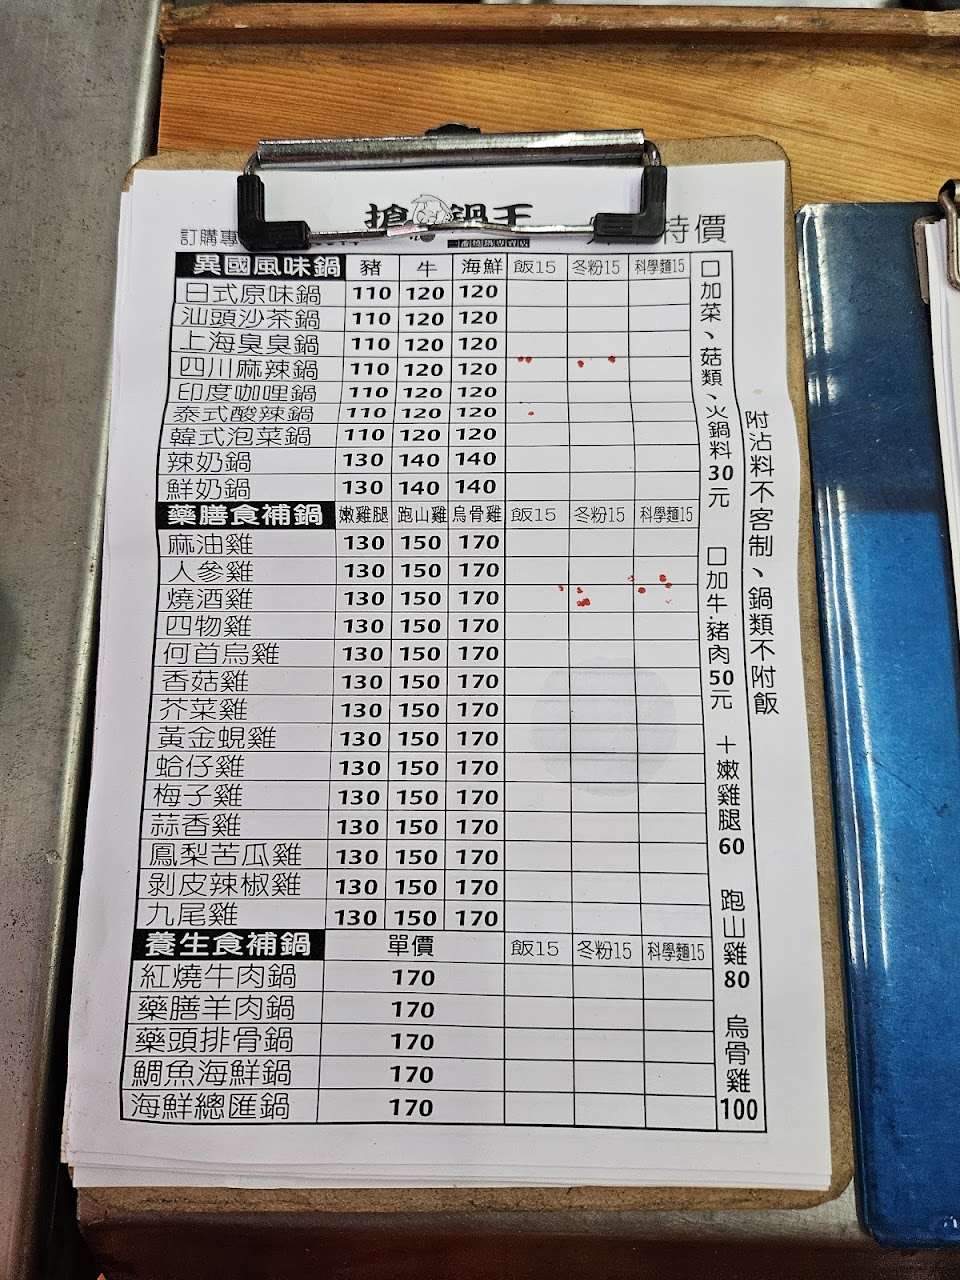 搶鍋王
一番燒鍋專賣店
訂購專
特價
異國風味鍋 豬 牛 海鮮 飯15 冬粉15 科學麵15
日式原味鍋 110 120 120
汕頭沙茶鍋 110 120 120
上海臭臭鍋 110 120 120
四川麻辣鍋 110 120 120
印度咖哩鍋 110 120 120
泰式酸辣鍋 110 120 120
韓式泡菜鍋 110 120 120
辣奶鍋 130 140 140
鮮奶鍋 130 140 140
藥膳食補鍋 嫩雞腿 跑山雞 烏骨雞 飯15 冬粉15 科學麵15
麻油雞 130 150 170
人參雞 130 150 170
燒酒雞 130 150 170
四物雞 130 150 170
何首烏雞 130 150 170
香菇雞 130 150 170
芥菜雞 130 150 170
黃金蜆雞 130 150 170
蛤仔雞 130 150 170
梅子雞 130 150 170
蒜香雞 130 150 170
鳳梨苦瓜雞 130 150 170
剝皮辣椒雞 130 150 170
九尾雞 130 150 170
養生食補鍋 單價 飯15 冬粉15 科學麵15
紅燒牛肉鍋 170
藥膳羊肉鍋 170
藥頭排骨鍋 170
鯛魚海鮮鍋 170
海鮮總匯鍋 170
附沾料不客制、鍋類不附飯
□加菜、菇類、火鍋料30元 □加牛.豬肉50元 +嫩雞腿60 跑山雞80 烏骨雞100